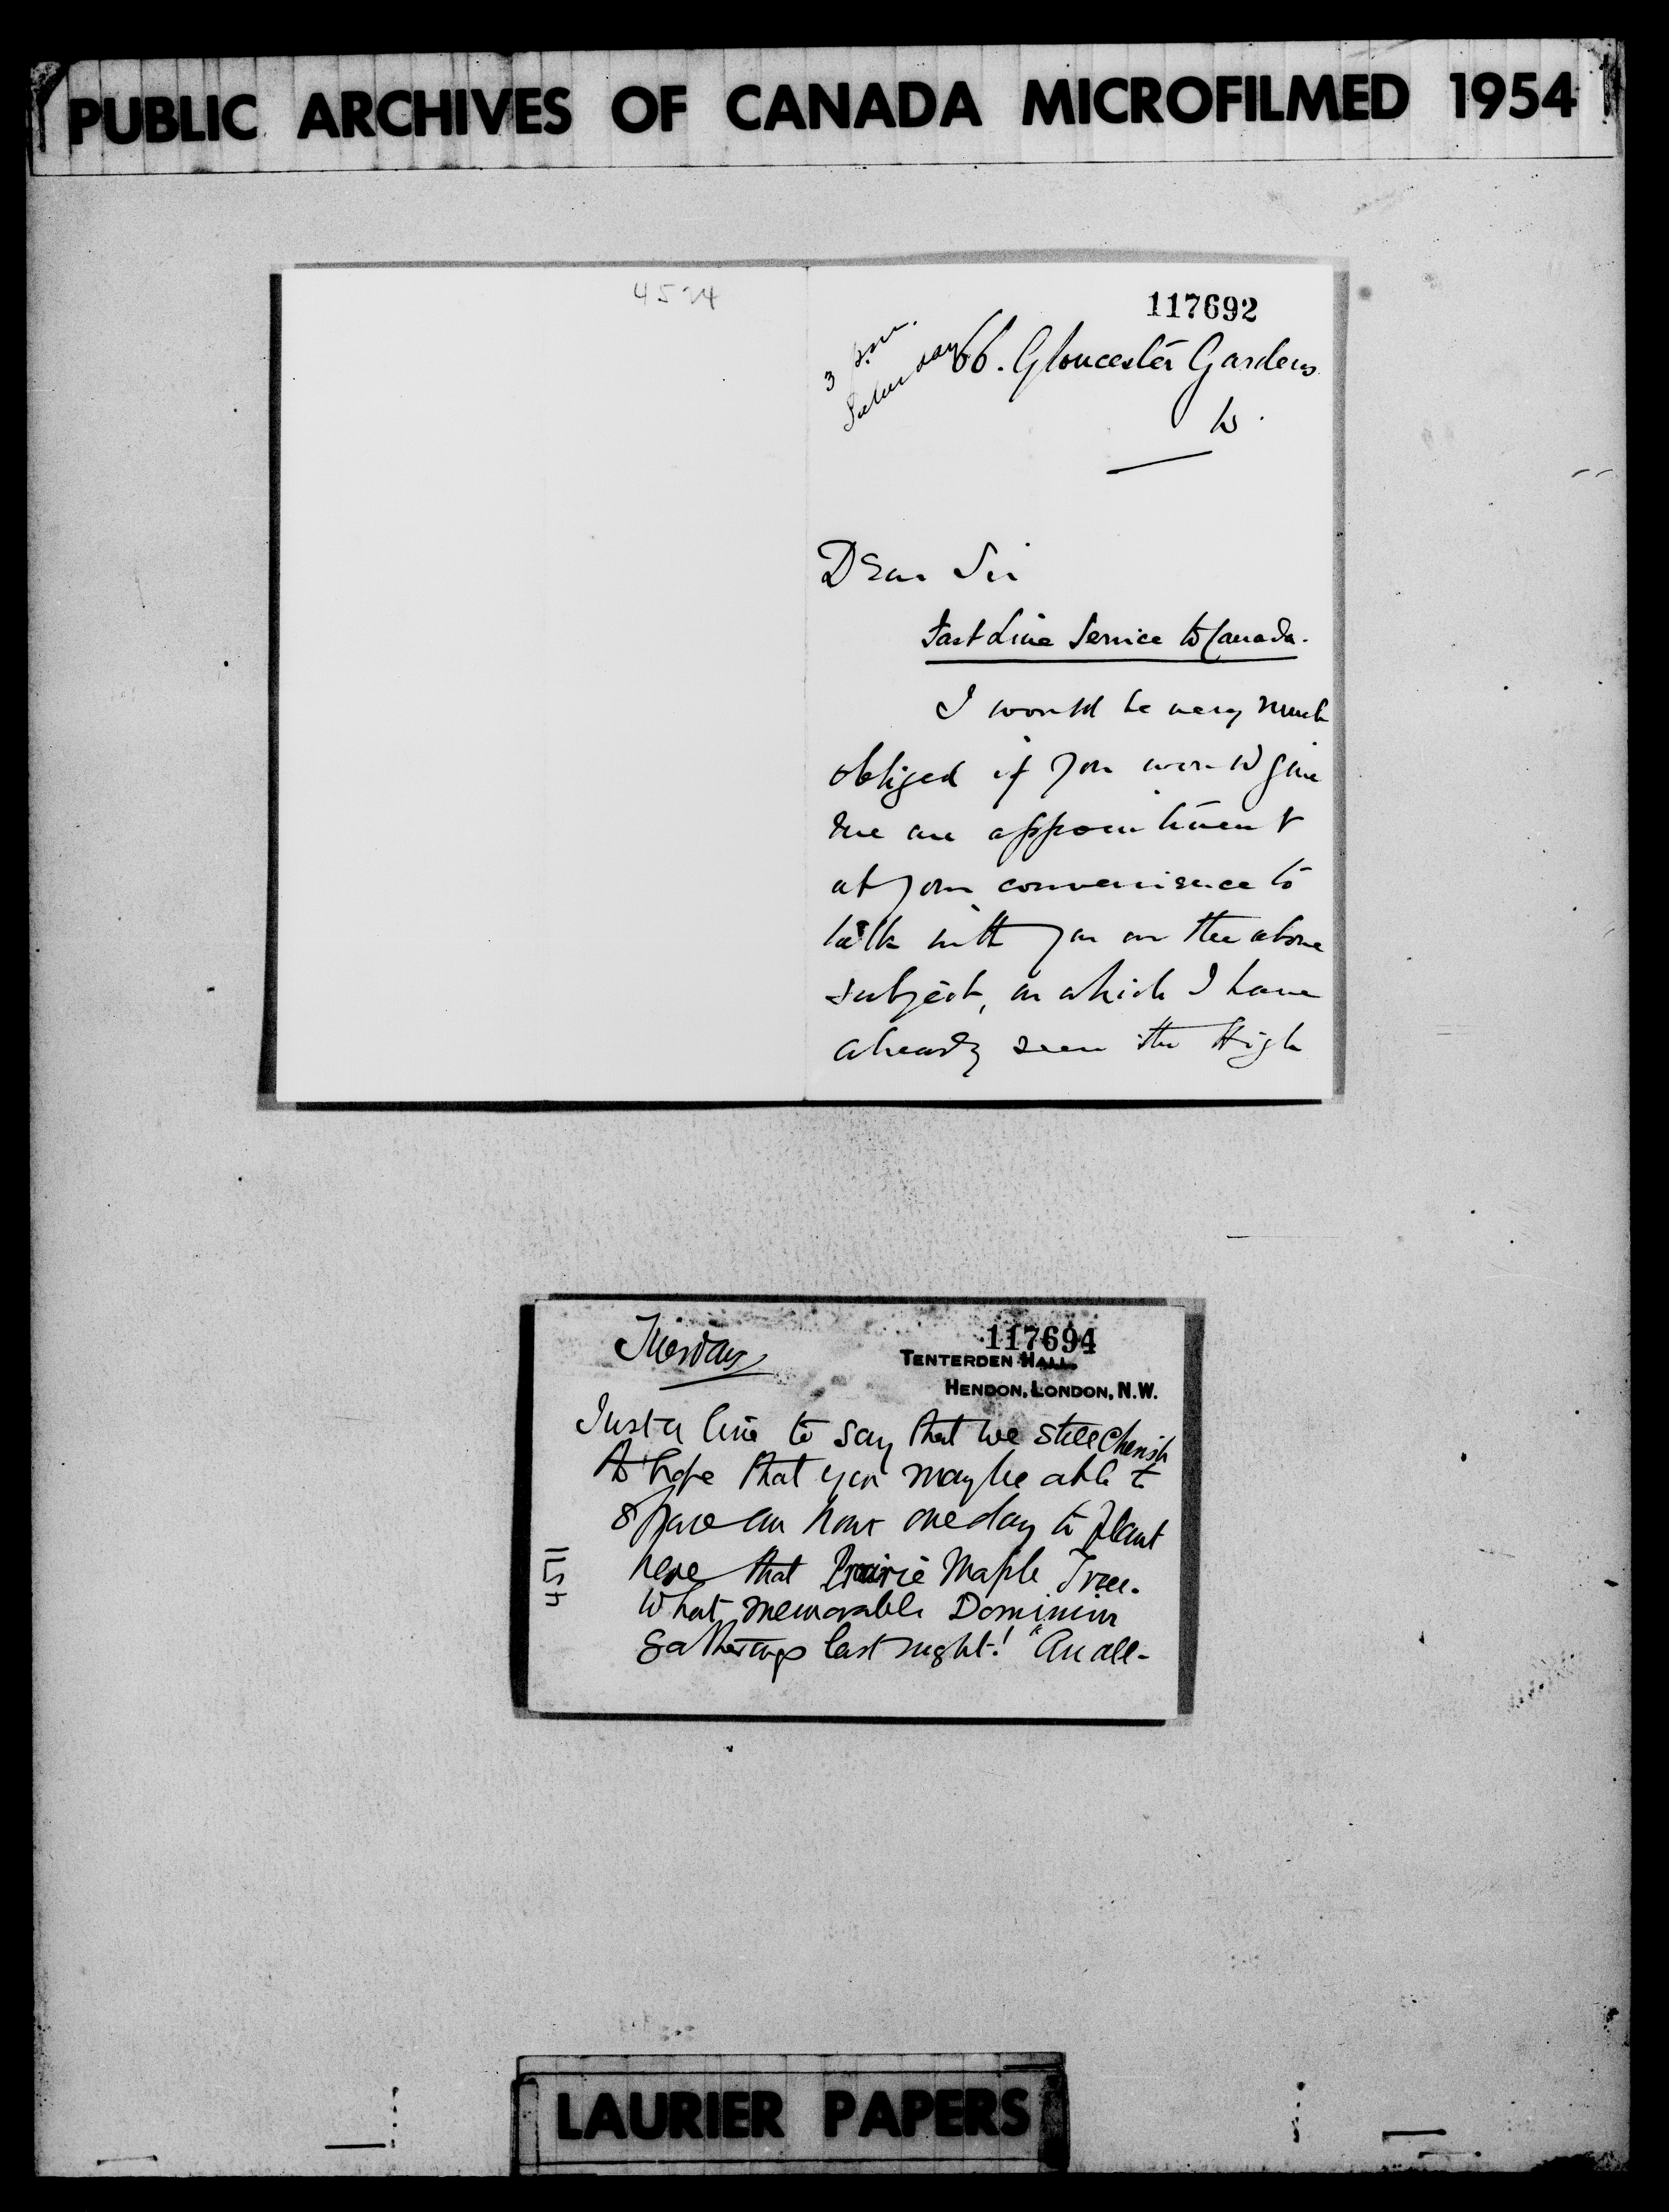 PUBLIC ARCHIVES OF CANADA MICROFILMED 1954
4524
117692
3 p.m.
Saturday
66. Gloucester Gardens
W.
Dear Sir
Fast Line Service to Canada.
I would be very much
obliged if you would give
me an appointment
at your convenience to
talk with you on the above
subject, on which I have
already seen the High
Tuesday
117694
TENTERDEN HALL,
HENDON, LONDON, N.W.
Just a line to say that we still cherish
hope that you may be able to
spare an hour one day to plant
here that Prairie Maple Tree.
What memorable Dominion
gatherings last night! "An all-
LAURIER PAPERS